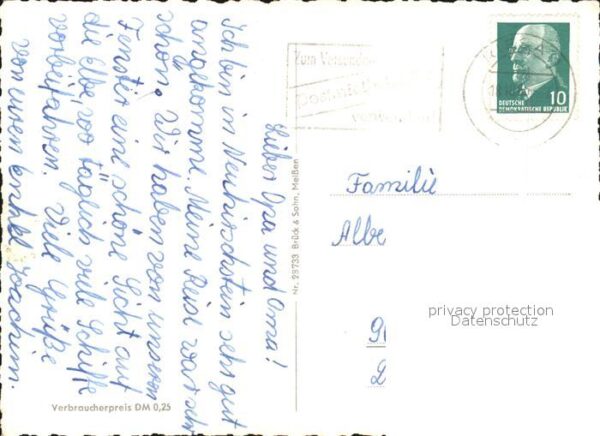 Lieber Opa und Oma!
Ich bin in Neuhirschstein sehr gut
angekomme. Meine Reise war sehr
schön. Wir haben von unserem
Fenster eine schöne Sicht auf
die Elbe, wo täglich viele Schiffe
vorbeifahren. Viele Grüße
von eurem Enkel Joachim
Verbraucherpreis DM 0,25
Nr. 28733 Brück & Sohn, Meißen
Zum Versenden
10
DEUTSCHE
DEMOKRATISCHE REPUBLIK
Familie
Albe
privacy protection
Datenschutz